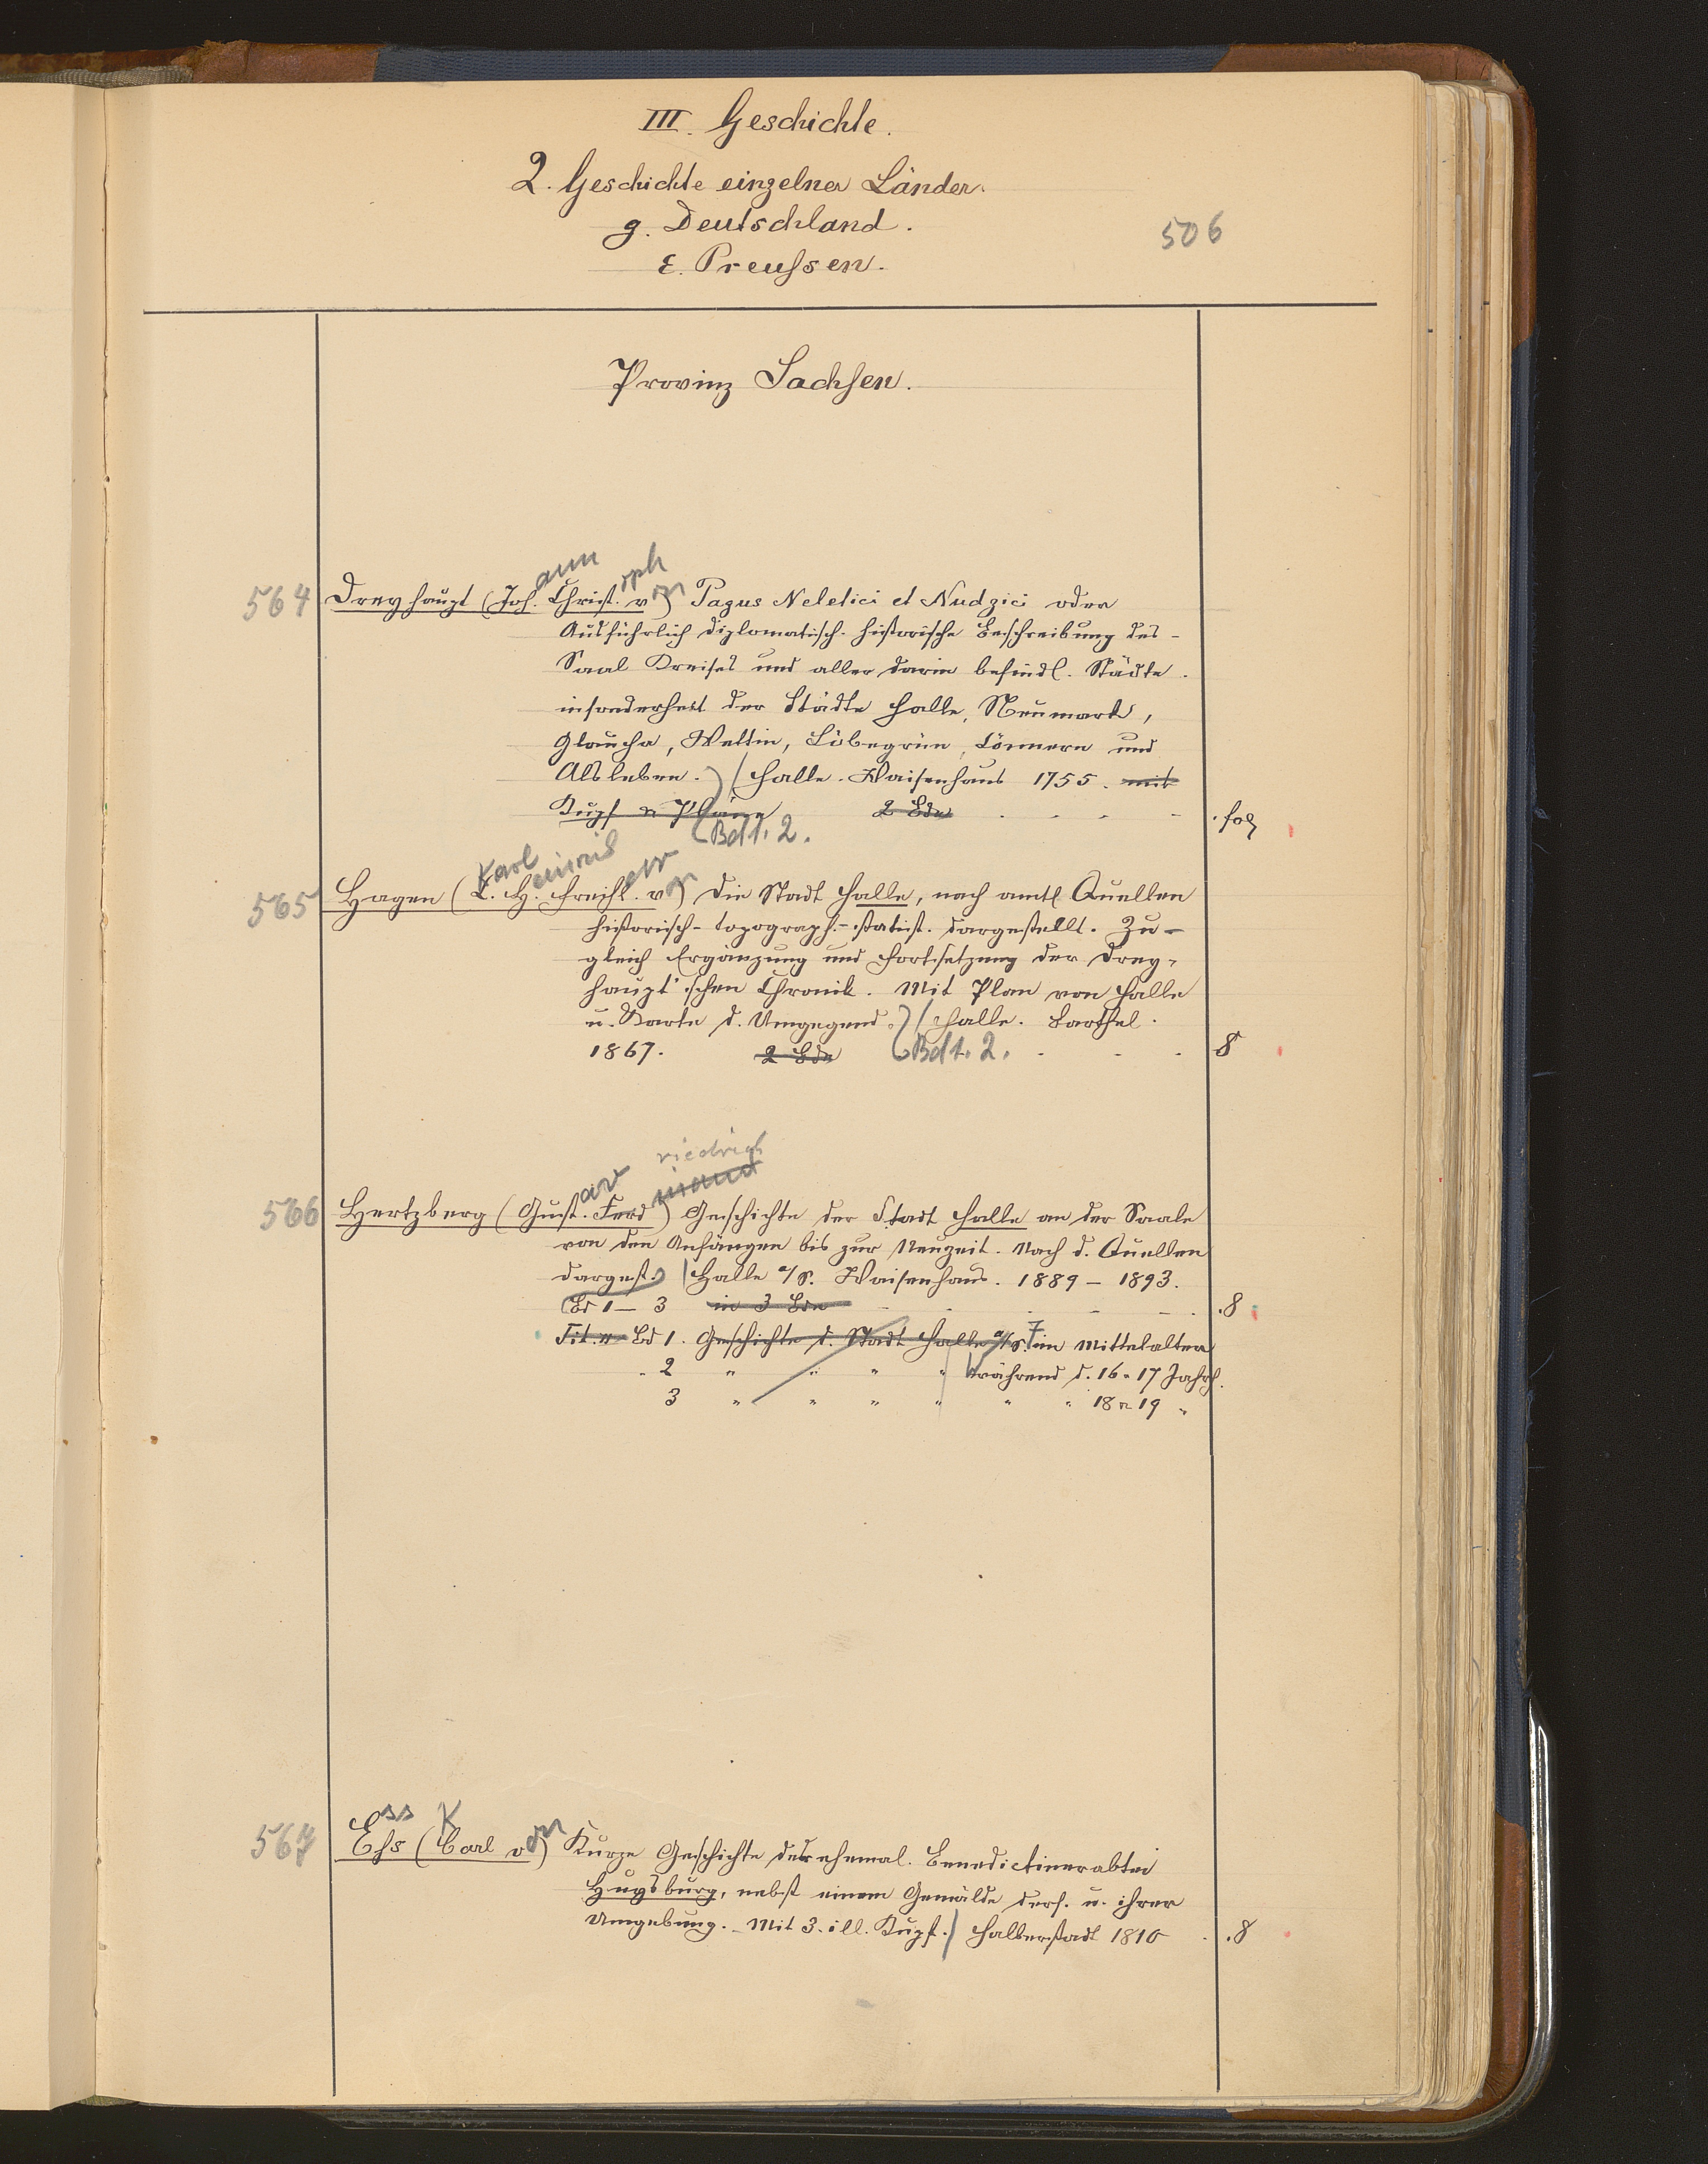 III. Geschichte.
2. Geschichte einzelner Länder.
g. Deutschland.
506
ε. Preußen.
Provinz Sachsen.
ann oph
564 Dreyhaupt (Joh. Christ. von) Pagus Neletici et Nudzici oder
Ausführlich diplomatisch-historische Beschreibung des
Saal Kreises und aller darin befindl. Städte.
insonderheit der Städte Halle, Neumark,
Glaucha, Wettin, Löbegrün, Cönnern und
Alsleben.) / Halle. Waisenhaus 1755. mit
Kupf u Pläne 2 Bde . fol
Bd 1. 2.
Karl einrich err
565 Hagen (C. H. Freih. von) Die Stadt Halle, nach amtl. Quellen
historisch-topograph.-statist. dargestellt. Zu-
gleich Ergänzung und Fortsetzung der Drey-
haupt'schen Chronik. Mit Plan von Halle
u. Karte d. Umgegend.) / Halle. Barthel.
1867. 2 Bde Bd 1. 2. 8
riedrich
av inand
566 Hertzberg (Gust. Ferd) Geschichte der Stadt Halle an der Saale
von den Anfängen bis zur Neuzeit. Nach d. Quellen
dargest. / Halle a/S. Waisenhaus. 1889 – 1893.
Bd 1 – 3 in 3 Bde . 8
Tit. v Bd 1. Geschichte d. Stadt Halle a/S. im Mittelalter
" 2 " " " " während d. 16 u 17 Jahrh.
3 " " " " " " 18 u 19 "
ss K
567 Eſs (Carl von) Kurze Geschichte der ehemal. Benedictinerabtei
Huysburg, nebst einem Gemälde ders. u. ihrer
Umgebung. Mit 3. ill. Kupf. / Halberstadt 1810 . 8